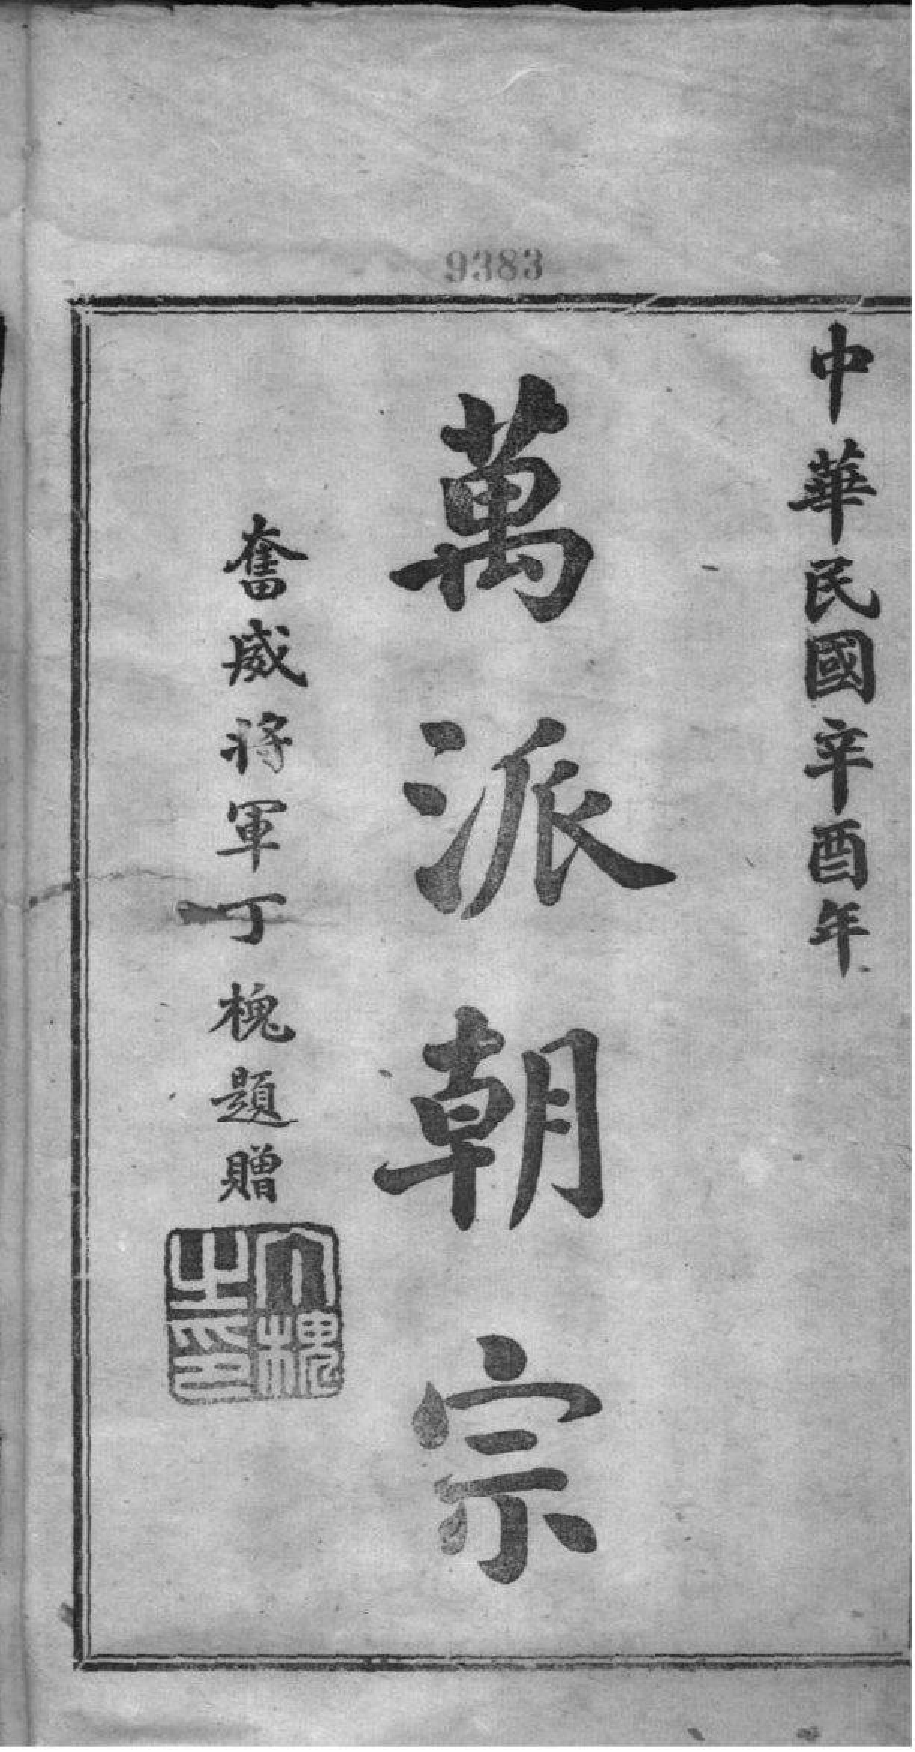 9383
中華民國辛酉年
萬派朝宗
奮威將軍丁槐題贈
丁槐之印